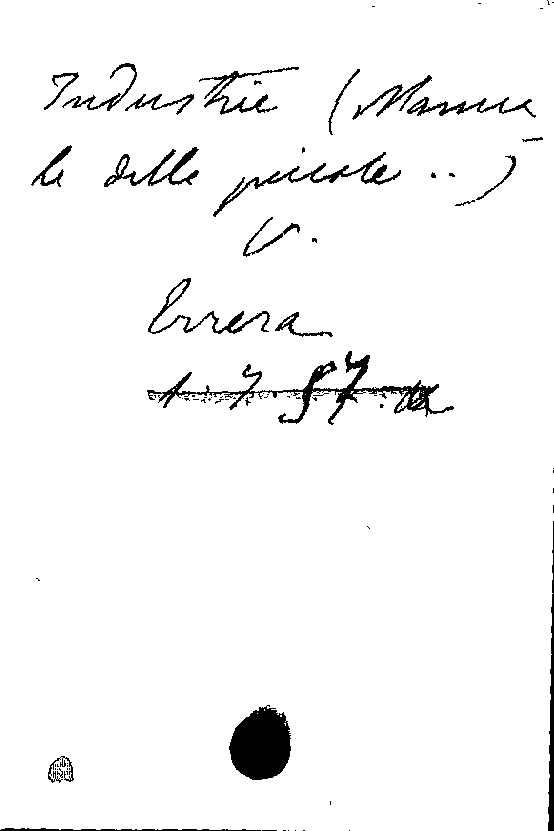 Industrie (Manua
le delle piccole ..)
V.
Errera
1.7.57.